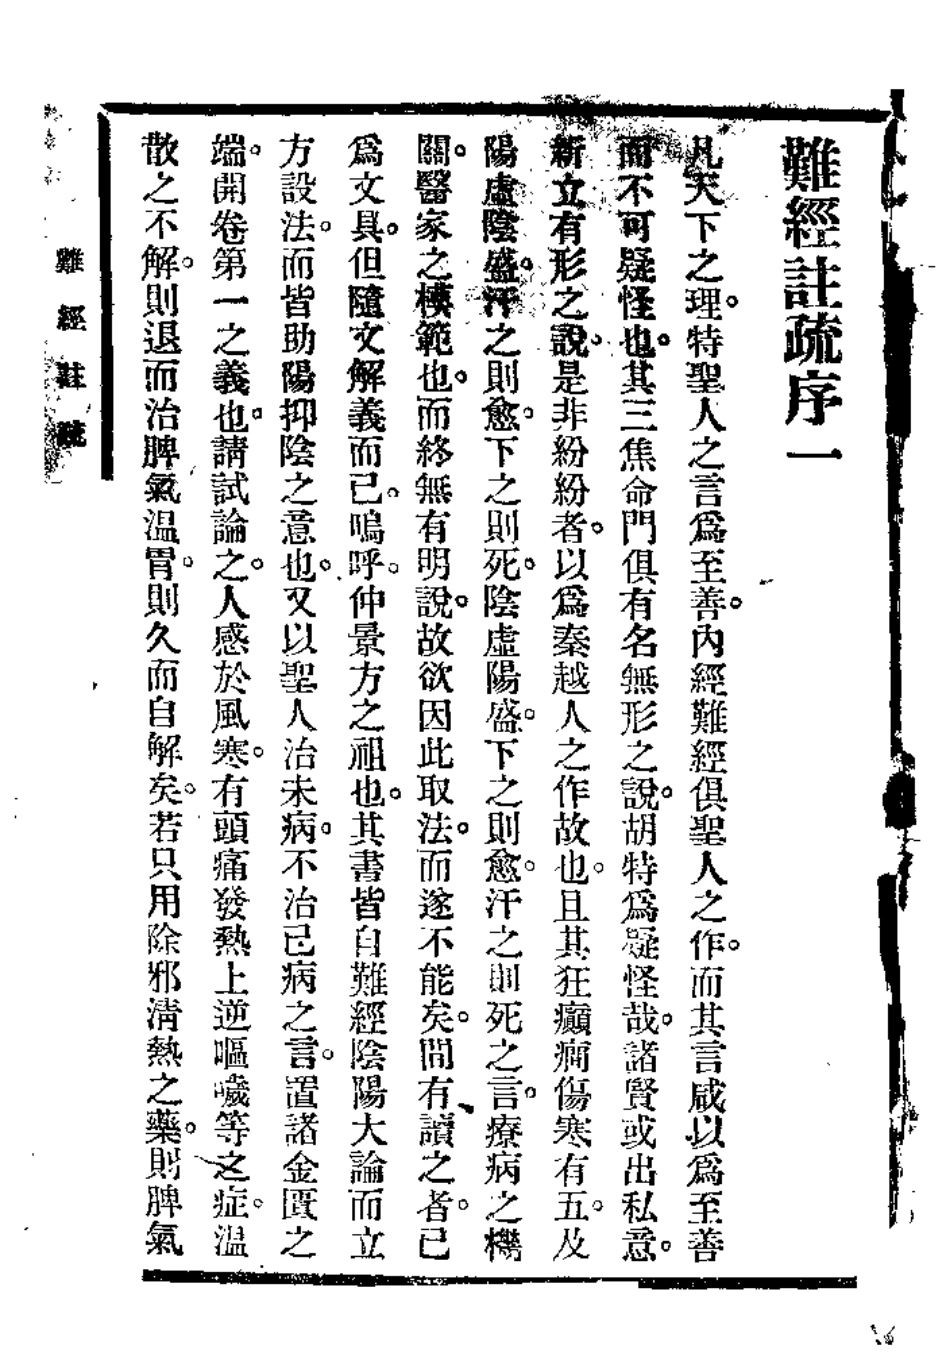 難經註疏序一
凡天下之理。特聖人之言爲至善。內經難經俱聖人之作。而其言咸以爲至善
而不可疑怪也。其三焦命門俱有名無形之說。胡特爲疑怪哉。諸賢或出私意。
新立有形之說。是非紛紛者。以爲秦越人之作故也。且其狂癲癇傷寒有五。及
陽虛陰盛。汗之則愈。下之則死。陰虛陽盛。下之則愈。汗之則死之言。療病之機
關。醫家之模範也。而終無有明說。故欲因此取法。而遂不能矣。間有讀之者。已
爲文具。但隨文解義而已。嗚呼。仲景方之祖也。其書皆自難經陰陽大論而立
方設法。而皆助陽抑陰之意也。又以聖人治未病。不治已病之言。置諸金匱之
端。開卷第一之義也。請試論之。人感於風寒。有頭痛發熱上逆嘔噦等之症。溫
散之不解。則退而治脾氣溫胃。則久而自解矣。若只用除邪清熱之藥。則脾氣
難經註疏